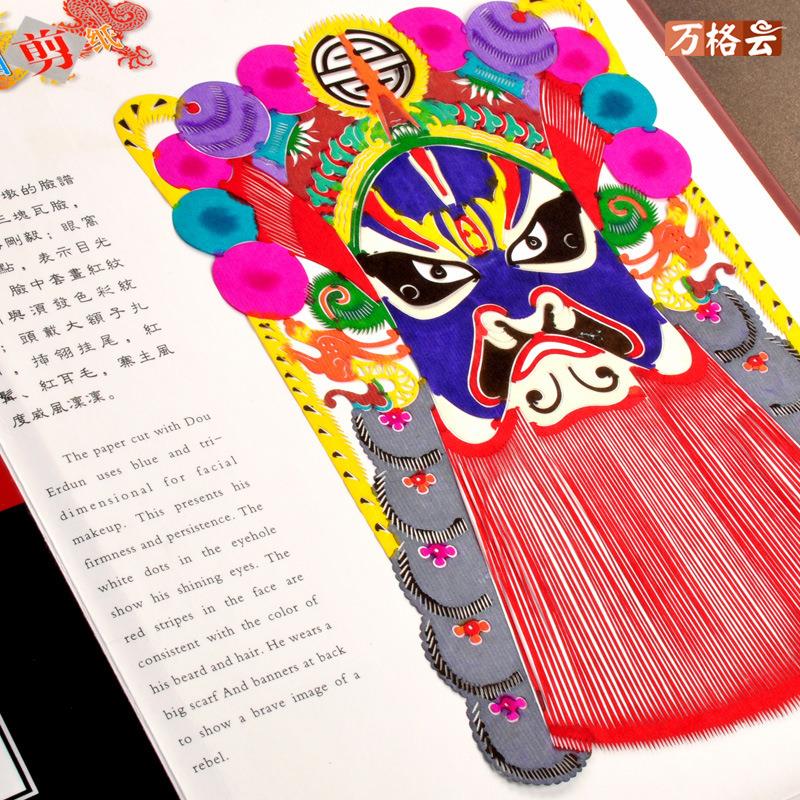 剪纸
万格云
墩的臉譜
三塊瓦臉，
剛毅；眼窩
點，表示目光
臉中套畫紅紋
與須發色彩統
；頭戴大額子扎
，插翎挂尾，紅
、紅耳毛，寨主風
度威風凜凜。
The paper cut with Dou
Erdun uses blue and tri-
dimensional for facial
makeup. This presents his
firmness and persistence. The
white dots in the eyehole
show his shining eyes. The
red stripes in the face are
consistent with the color of
his beard and hair. He wears a
big scarf And banners at back
to show a brave image of a
rebel.